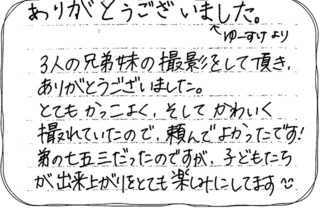 ありがとうございました。
ゆーすけより
3人の兄弟妹の撮影をして頂き、
ありがとうございました。
とてもかっこよく、そしてかわいく
撮れていたので、頼んでよかったです!
弟の七五三だったのですが、子どもたち
が出来上がりをとても楽しみにしてます